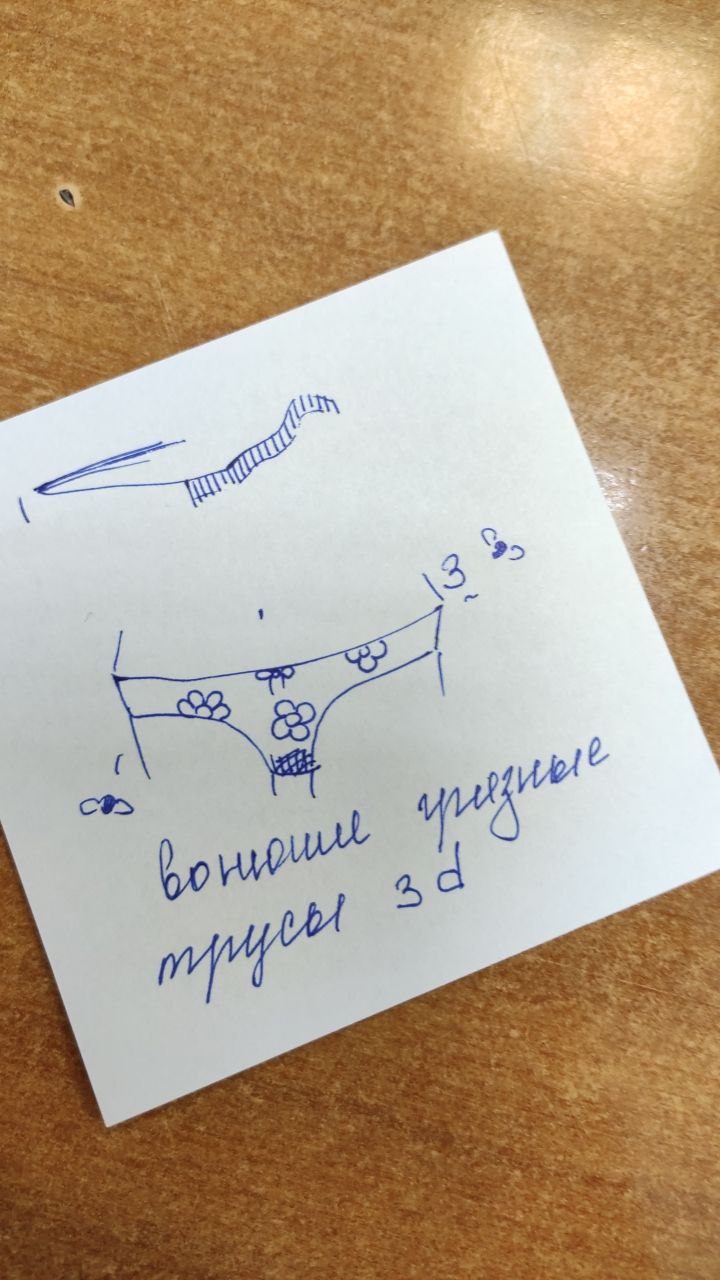 3
вонючие грязные
трусы 3d